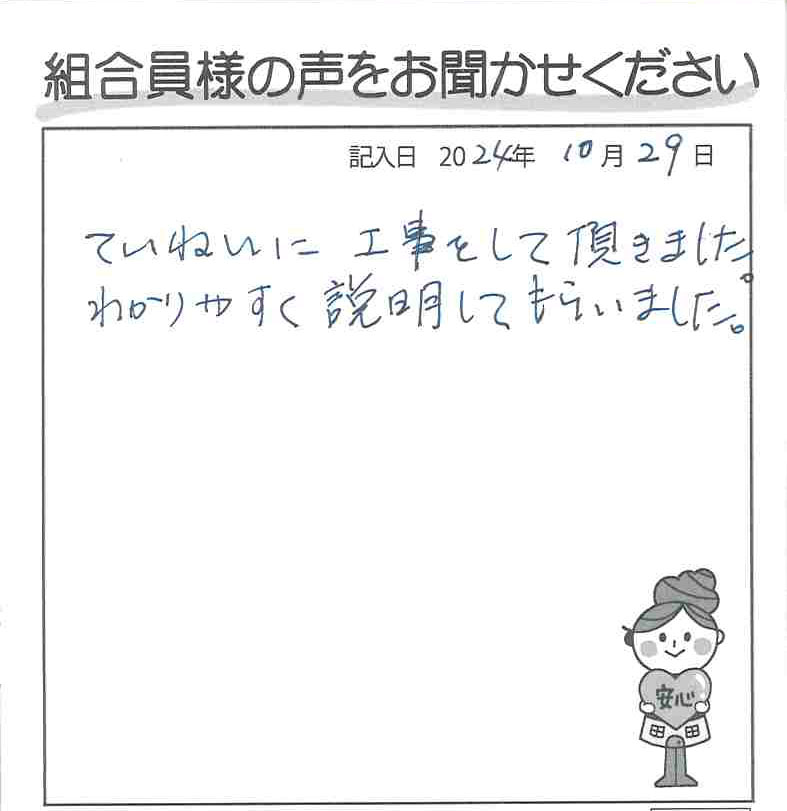 組合員様の声をお聞かせください
記入日 2024年 10月29日
ていねいに 工事をして頂きました。
わかりやすく説明してもらいました。
安心